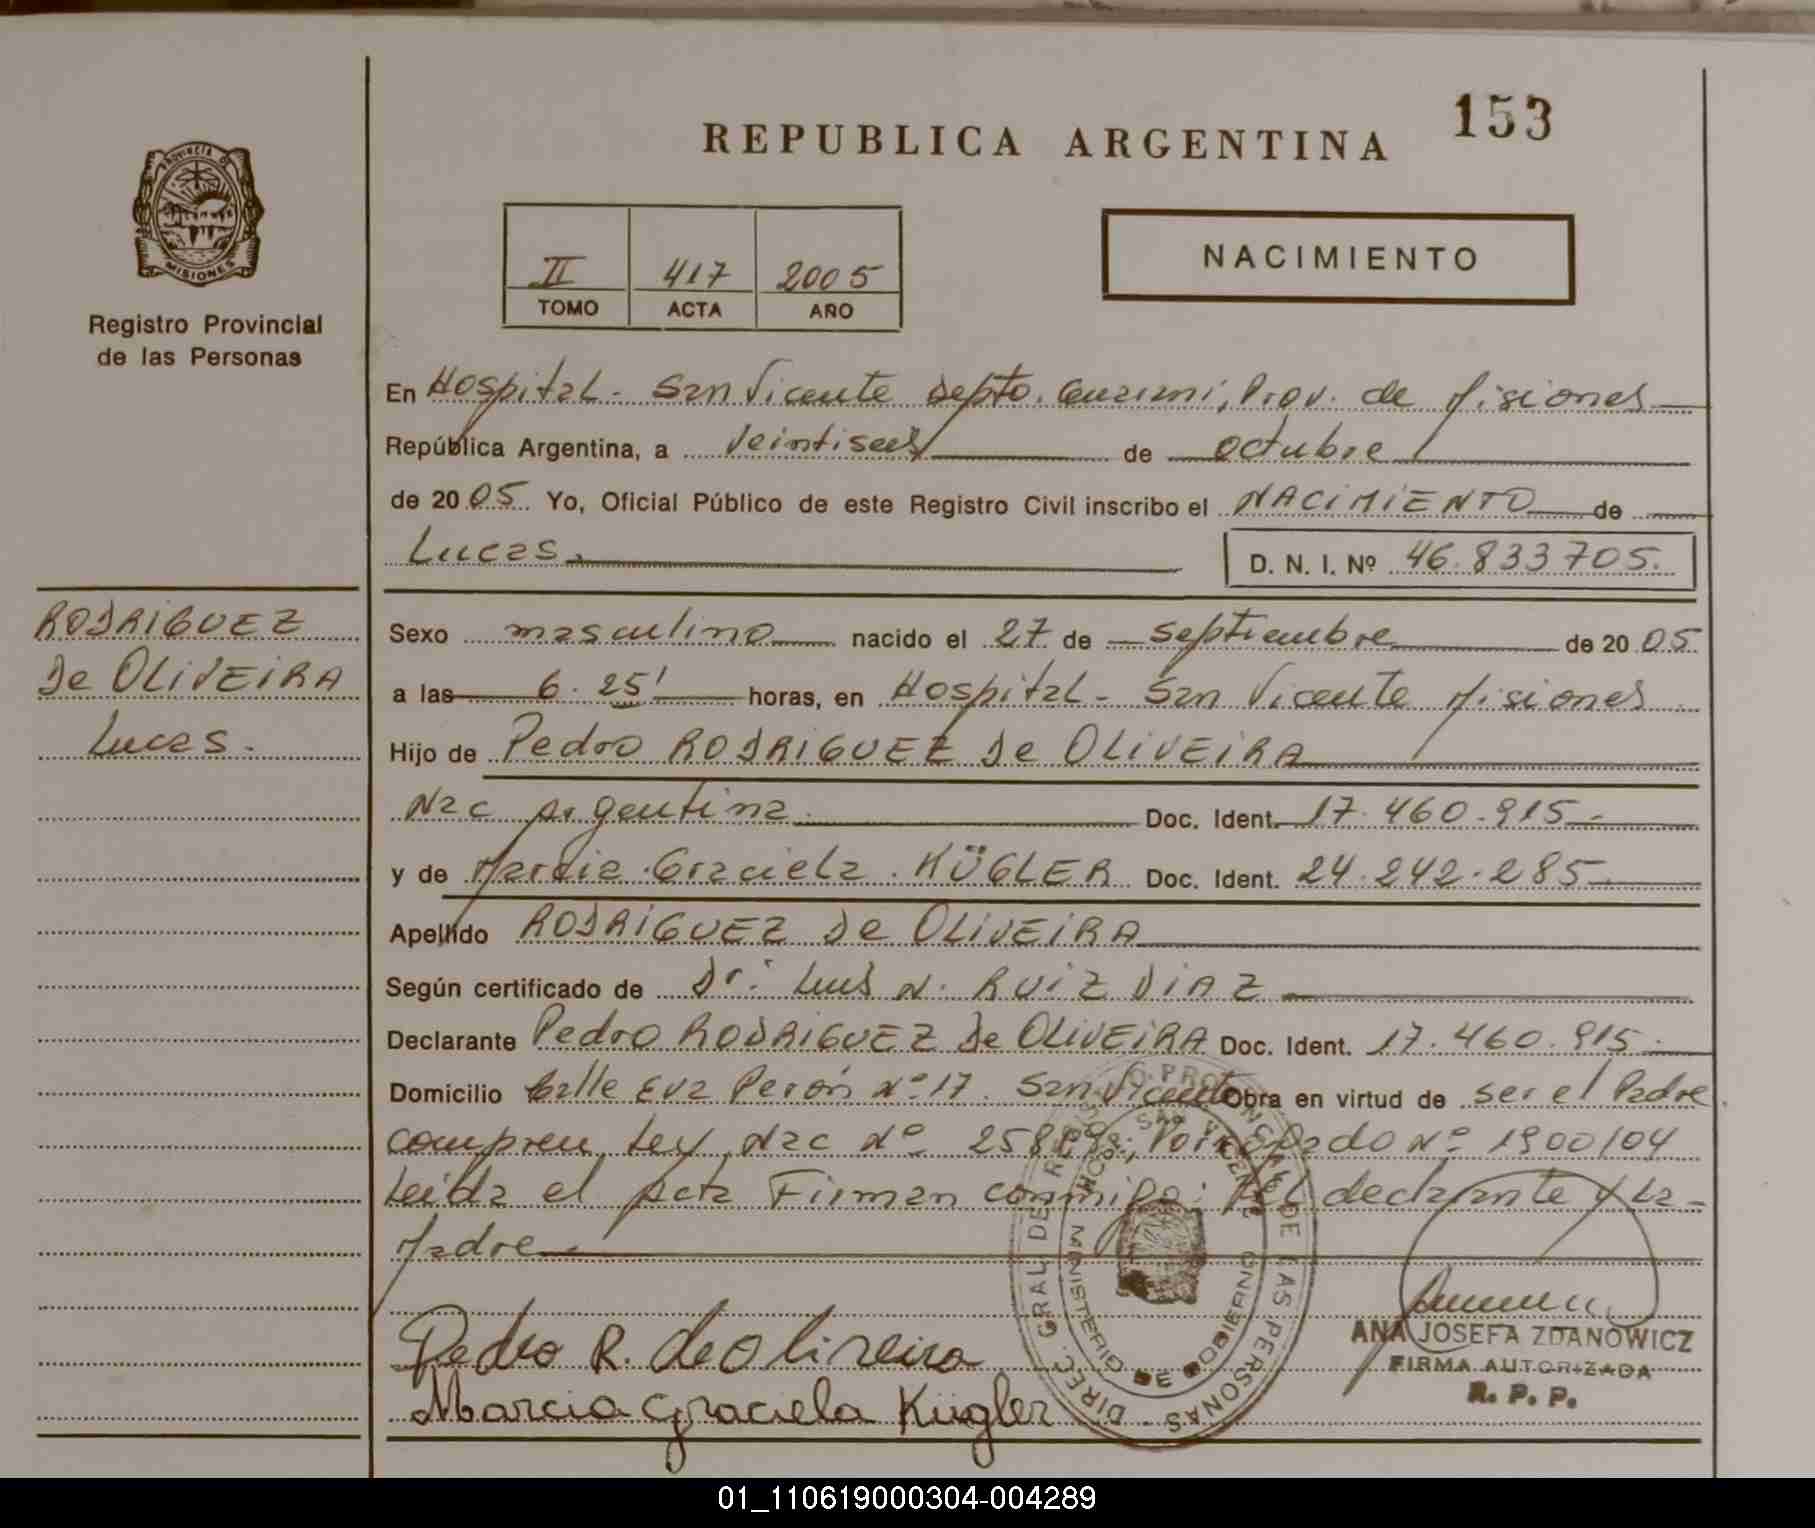 153
REPUBLICA ARGENTINA
PROVINCIA DE
MISIONES
Registro Provincial
de las Personas
II 417 2005
TOMO ACTA AÑO
NACIMIENTO
En Hospital - San Vicente Depto. Guaraní, Prov. de Misiones
República Argentina, a Veintiseis de octubre
de 2005. Yo, Oficial Público de este Registro Civil inscribo el NACIMIENTO de
Lucas.
D. N. I. Nº 46.833705.
RODRIGUEZ
De OLIVEIRA
Lucas.
Sexo masculino nacido el 27 de septiembre de 2005.
a las 6.25' horas, en Hospital - San Vicente Misiones
Hijo de Pedro RODRIGUEZ De OLIVEIRA
Nac Argentina Doc. Ident. 17.460.915.-
y de Marcia Graciela KÜGLER Doc. Ident. 24.242.285.-
Apellido RODRIGUEZ De OLIVEIRA
Según certificado de Dr. Luis N. RUIZ DIAZ
Declarante Pedro RODRIGUEZ De OLIVEIRA Doc. Ident. 17.460.915.-
Domicilio Calle Eva Perón Nº 17. San Vicente Obra en virtud de ser el Padre
compren. Ley Nac Nº Nº 1900/04
Leida el Acta Firman conmigo: el declarante y La
Madre
Pedro R. de Olireira
Marcia Graciela Kügler
DIREC. GRAL. DE REGISTRO PROVINCIAL DE LAS PERSONAS
MINISTERIO DE GOBIERNO
SAN VICENTE
ANA JOSEFA ZDANOWICZ
FIRMA AUTORIZADA
R. P. P.
01_110619000304-004289